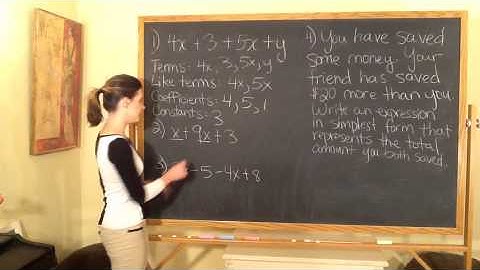 1) 4x + 3 + 5x + y
Terms: 4x, 3, 5x, y
Like terms: 4x, 5x
Coefficients: 4, 5, 1
Constants: 3
2) x + 9x + 3
3) - 5 - 4x + 8
4) You have saved
some money. Your
friend has saved
$20 more than you.
Write an expression
in simplest form that
represents the total
amount you both saved.